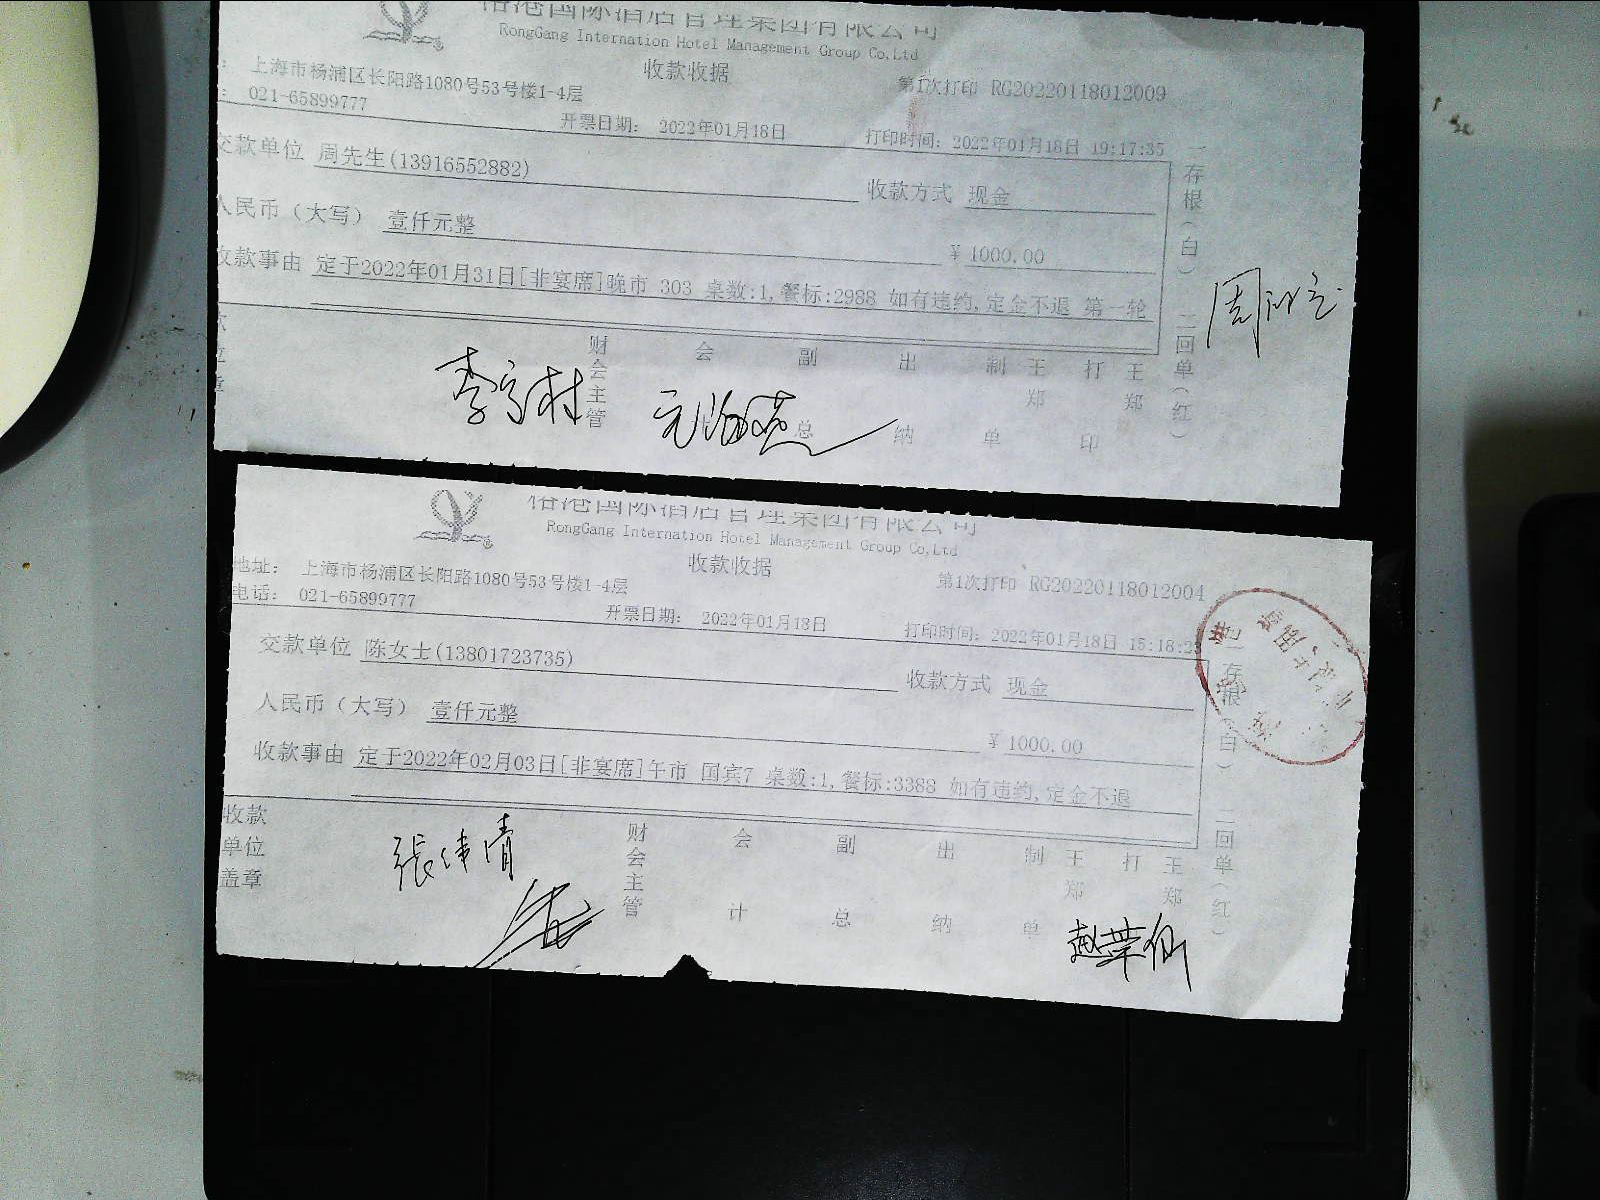 榕港国际酒店管理集团有限公司
RongGang Internation Hotel Management Group Co,Ltd
收款收据
上海市杨浦区长阳路1080号53号楼1-4层
第1次打印 RG20220118012009
: 021-65899777
开票日期: 2022年01月18日
打印时间: 2022年01月18日 19:17:35
交款单位 周先生(13916552882)
收款方式 现金
人民币（大写） 壹仟元整
¥ 1000.00
收款事由 定于2022年01月31日[非宴席]晚市 303 桌数:1,餐标:2988 如有违约,定金不退 第一轮
一存根(白) 二回单(红)
财会主管 会 副总 出纳 制单 王郑 打印 王郑
榕港国际酒店管理集团有限公司
RongGang Internation Hotel Management Group Co,Ltd
收款收据
地址: 上海市杨浦区长阳路1080号53号楼1-4层
第1次打印 RG20220118012004
电话: 021-65899777
开票日期: 2022年01月18日
打印时间: 2022年01月18日 15:18:2
交款单位 陈女士(13801723735)
收款方式 现金
人民币（大写） 壹仟元整
¥ 1000.00
收款事由 定于2022年02月03日[非宴席]午市 国宾7 桌数:1,餐标:3388 如有违约,定金不退
一存根(白) 二回单(红)
收款单位盖章 財会主管 会计 副总 出纳 制单 王郑 打 王郑
張伟清
赵荣仙